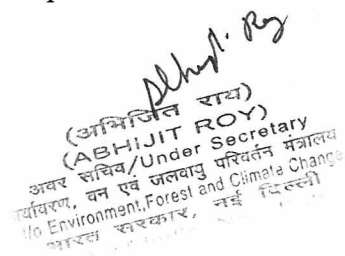 Abhijit Roy
(अभिजित राय)
(ABHIJIT ROY)
अवर सचिव/Under Secretary
पर्यावरण, वन एवं जलवायु परिवर्तन मंत्रालय
Environment,Forest and Climate Change
भारत सरकार, नई दिल्ली